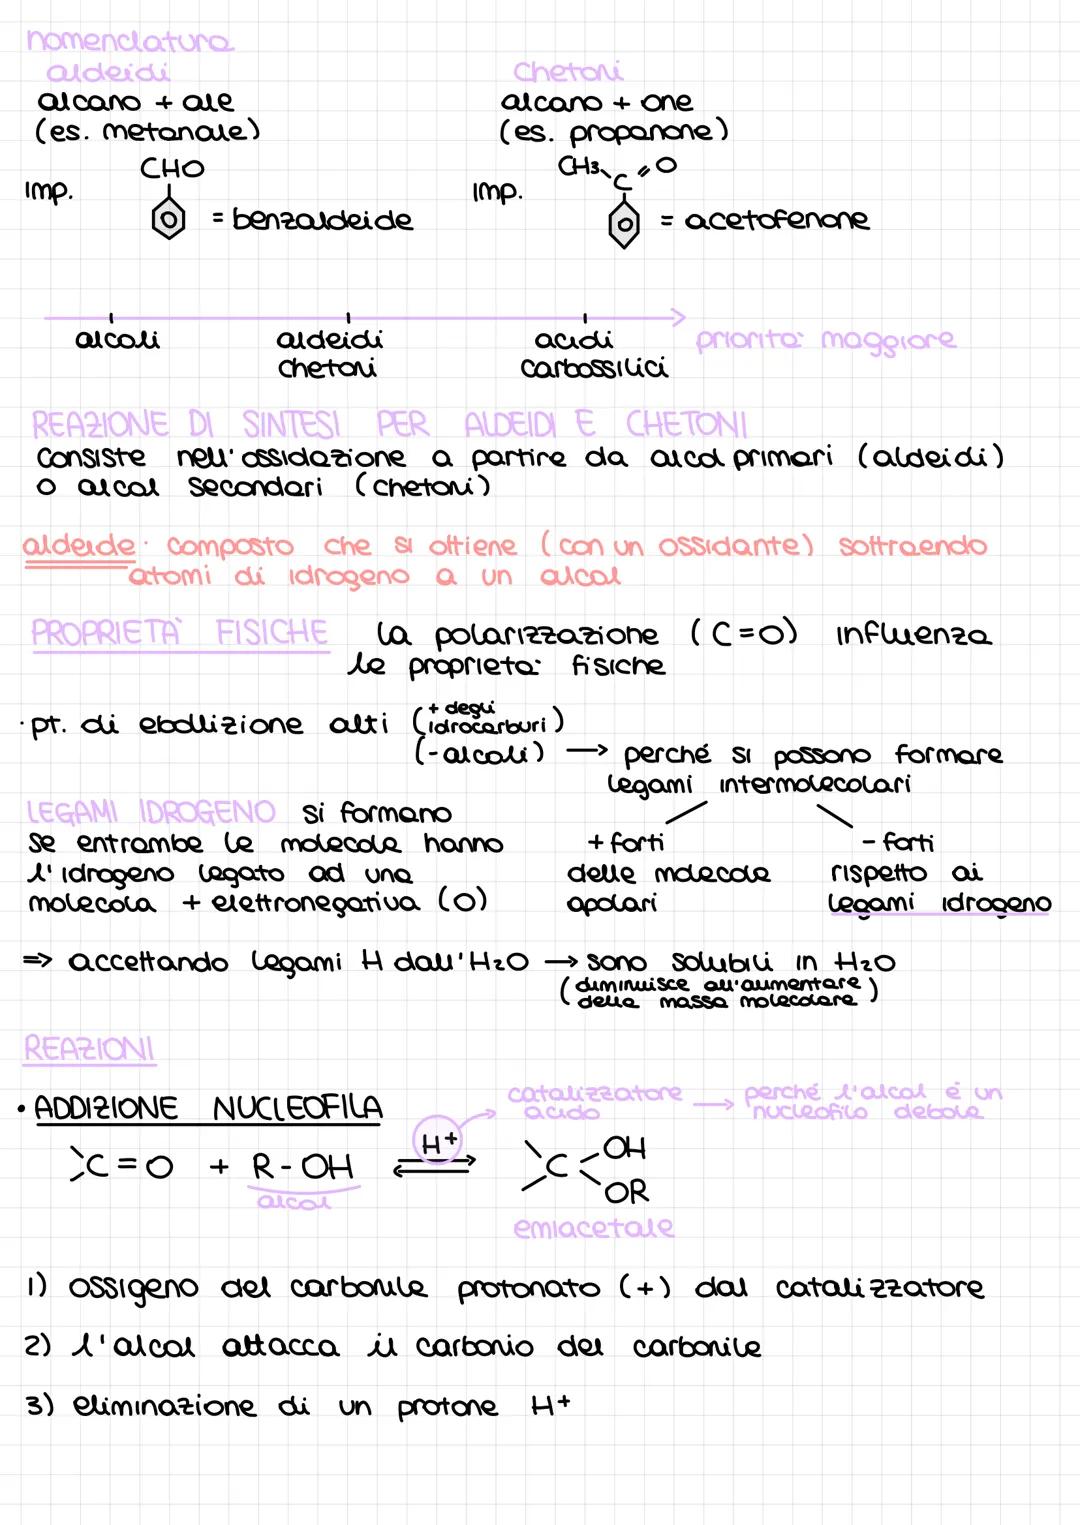 nomenclatura
aldeidi
Chetoni
alcano + ale
alcano + one
(es. metanale)
(es. propanone)
CHO
CH3 C = O
Imp.
= benzaldeide
Imp.
= acetofenone
alcoli
aldeidi
chetoni
acidi
carbossilici
priorità maggiore
REAZIONE DI SINTESI PER ALDEIDI E CHETONI
Consiste nell'ossidazione a partire da alcol primari (aldeidi)
o alcol secondari (chetoni)
aldeide: composto che si ottiene (con un ossidante) sottraendo
atomi di idrogeno a un alcol
PROPRIETÀ FISICHE la polarizzazione (C=O) influenza
le proprietà fisiche
· pt. di ebollizione alti (+ degli idrocarburi)
(- alcoli) → perché si possono formare
legami intermolecolari
LEGAMI IDROGENO si formano
se entrambe le molecole hanno
l'idrogeno legato ad una
molecola + elettronegativa (O)
+ forti
delle molecole
apolari
- forti
rispetto ai
legami idrogeno
⇒ accettando legami H dall'H2O → sono solubili in H2O
(diminuisce all'aumentare
della massa molecolare)
REAZIONI
• ADDIZIONE NUCLEOFILA
catalizzatore
acido
→ perché l'alcol è un
nucleofilo debole
C=O + R-OH
H+
C OH
OR
alcol
emiacetale
1) ossigeno del carbonile protonato (+) dal catalizzatore
2) l'alcol attacca il carbonio del carbonile
3) eliminazione di un protone H+